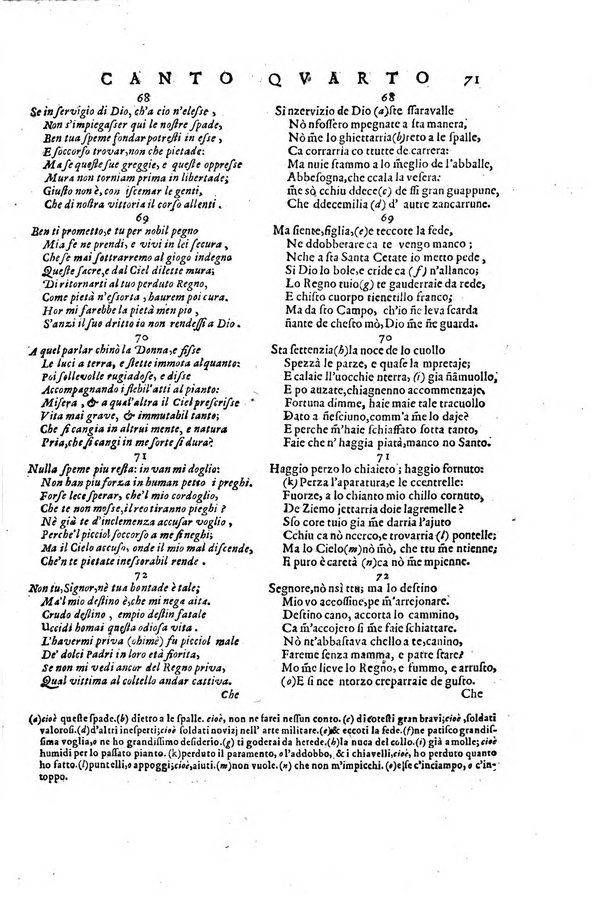 CANTO QVARTO 71
68
Se in servigio di Dio, ch'a cio n'elesse,
Non s'impiegasser qui le nostre spade,
Ben tua speme fondar potresti in esse,
E soccorso trovar, non che pietade:
Ma se queste sue greggie, e queste oppresse
Mura non torniam prima in libertade;
Giusto non è, con iscemar le genti,
Che di nostra vittoria il corso allenti.
69
Ben ti prometto, e tu per nobil pegno
Mia fe ne prendi, e vivi in lei secura,
Che se mai sottrarremo al giogo indegno
Queste sacre, e dal Ciel dilette mura;
Di ritornarti al tuo perduto Regno,
Come pietà n'essorta, haurem poi cura.
Hor mi farebbe la pietà men pio,
S'anzi il suo dritto io non rendessi a Dio.
70
A quel parlar chinò la Donna, e fisse
Le luci a terra, e stette immota alquanto:
Poi sollevolle rugiadose, e disse
Accompagnando i flebil'atti al pianto:
Misera, & a qual'altra il Ciel prescrisse
Vita mai grave, & immutabil tanto;
Che si cangia in altrui mente, e natura
Pria, che si cangi in me sorte sì dura?
71
Nulla speme piu resta: in van mi doglio:
Non han piu forza in human petto i preghi.
Forse lece sperar, che'l mio cordoglio,
Che te non mosse, il reo tiranno pieghi?
Nè già te d'inclemenza accusar voglio,
Perche'l picciol soccorso a me si neghi;
Ma il Cielo accuso, onde il mio mal discende,
Che'n te pietate inesorabil rende.
72
Non tu, Signor, nè tua bontade è tale;
Ma'l mio destino è, che mi nega aita.
Crudo destino, empio destin fatale
Uccidi homai questa odiosa vita.
L'havermi priva (ohimè) fu picciol male
De' dolci Padri in loro età fiorita,
Se non mi vedi ancor del Regno priva,
Qual vittima al coltello andar cattiva.
Che
68
Si nzervizio de Dio (a) ste ssaravalle
Nò nfossero mpegnate a sta manera,
Nò mme lo ghiettarria (b) reto a le spalle,
Ca corrarria co ttutte de carrera:
Ma nuie stammo a lo m̃eglio de l'abballe,
Abbesogna, che ccala la vesera:
m̃e sò cchiu ddece (c) de ssi gran guappune,
Che ddecemilia (d) d' autre zancarrune.
69
Ma siente, figlia, (e) e teccote la fede,
Ne ddobberare ca te vengo manco;
Nche a sta Santa Cetate io metto pede,
Si Dio lo bole, e cride ca (f) n'allanco;
Lo Regno tuio (g) te gauderraie da rede,
E chisto cuorpo tienetillo franco;
Ma da sto Campo, ch'io ñe leva scarda
ñante de chesto mò, Dio m̃e ñe guarda.
70
Sta settenzia (h) la noce de lo cuollo
Spezzà le parze, e quase la mpretaje;
E calaie ll'uocchie nterra, (i) gia ñam̃uollo,
E po auzate, chiagnenno accommenzaje,
Fortuna dimme, haie maie tale tracuollo
Dato a ñesciuno, comm'a m̃e lo daje?
E perche m'haie schiaffato sotta tanto,
Faie che n' haggia piatà, manco no Santo.
71
Haggio perzo lo chiaieto; haggio fornuto:
(k) Perza l'aparatura, e le ccentrelle:
Fuorze, a lo chianto mio chillo cornuto,
De Ziemo jettarria doie lagremelle?
Sso core tuio gia m̃e darria l'ajuto
Cchiu ca nò cerco, e trovarria (l) pontelle;
Ma lo Cielo (m) nò m̃ò, che ttu m̃e ntienne;
E puro è caretà (n) ca m̃e mpienne.
72
Segnore, nò nsì ttu; ma lo destino
Mio vo accossìne, pe m'arrejonare.
Destino cano, accorta lo cammino,
Ca m'accojeto si m̃e faie schiattare.
Nò nt'abbastava chello a te, canino,
Fareme senza mamma, e patre stare?
Mo me lieve lo Regno, e fummo, e arrusto,
(o) E si nce ntorzo creparraie de gusto.
Che
(a) cioè queste spade. (b) dietro a le spalle. cioè, non ne farei nessun conto. (c) di cotesti gran bravi; cioè, soldati
valorosi. (d) d'altri inesperti; cioè soldati novizj nell' arte militare. (e) & eccoti la fede. (f) ne patisco grandis-
sima voglia, o ne ho grandissimo desiderio. (g) ti goderai da herede. (h) la nuca del collo. (i) già a molle; cioè
humidi per lo passato pianto. (k) perduto il paramento, o l'addobbo, & i chiavelli, cioè, ho perduto quanto
ho fatto. (l) puntelli, o appoggi; cioè, aiuti. (m) non vuole. (n) che non m'impicchi. (o) e se c'inciampo, o c'in-
toppo.